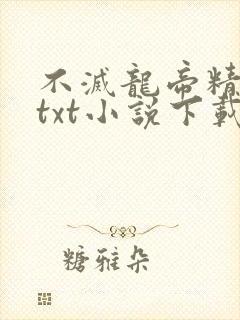 不滅龍帝精
txt小説下載
糖雅朵